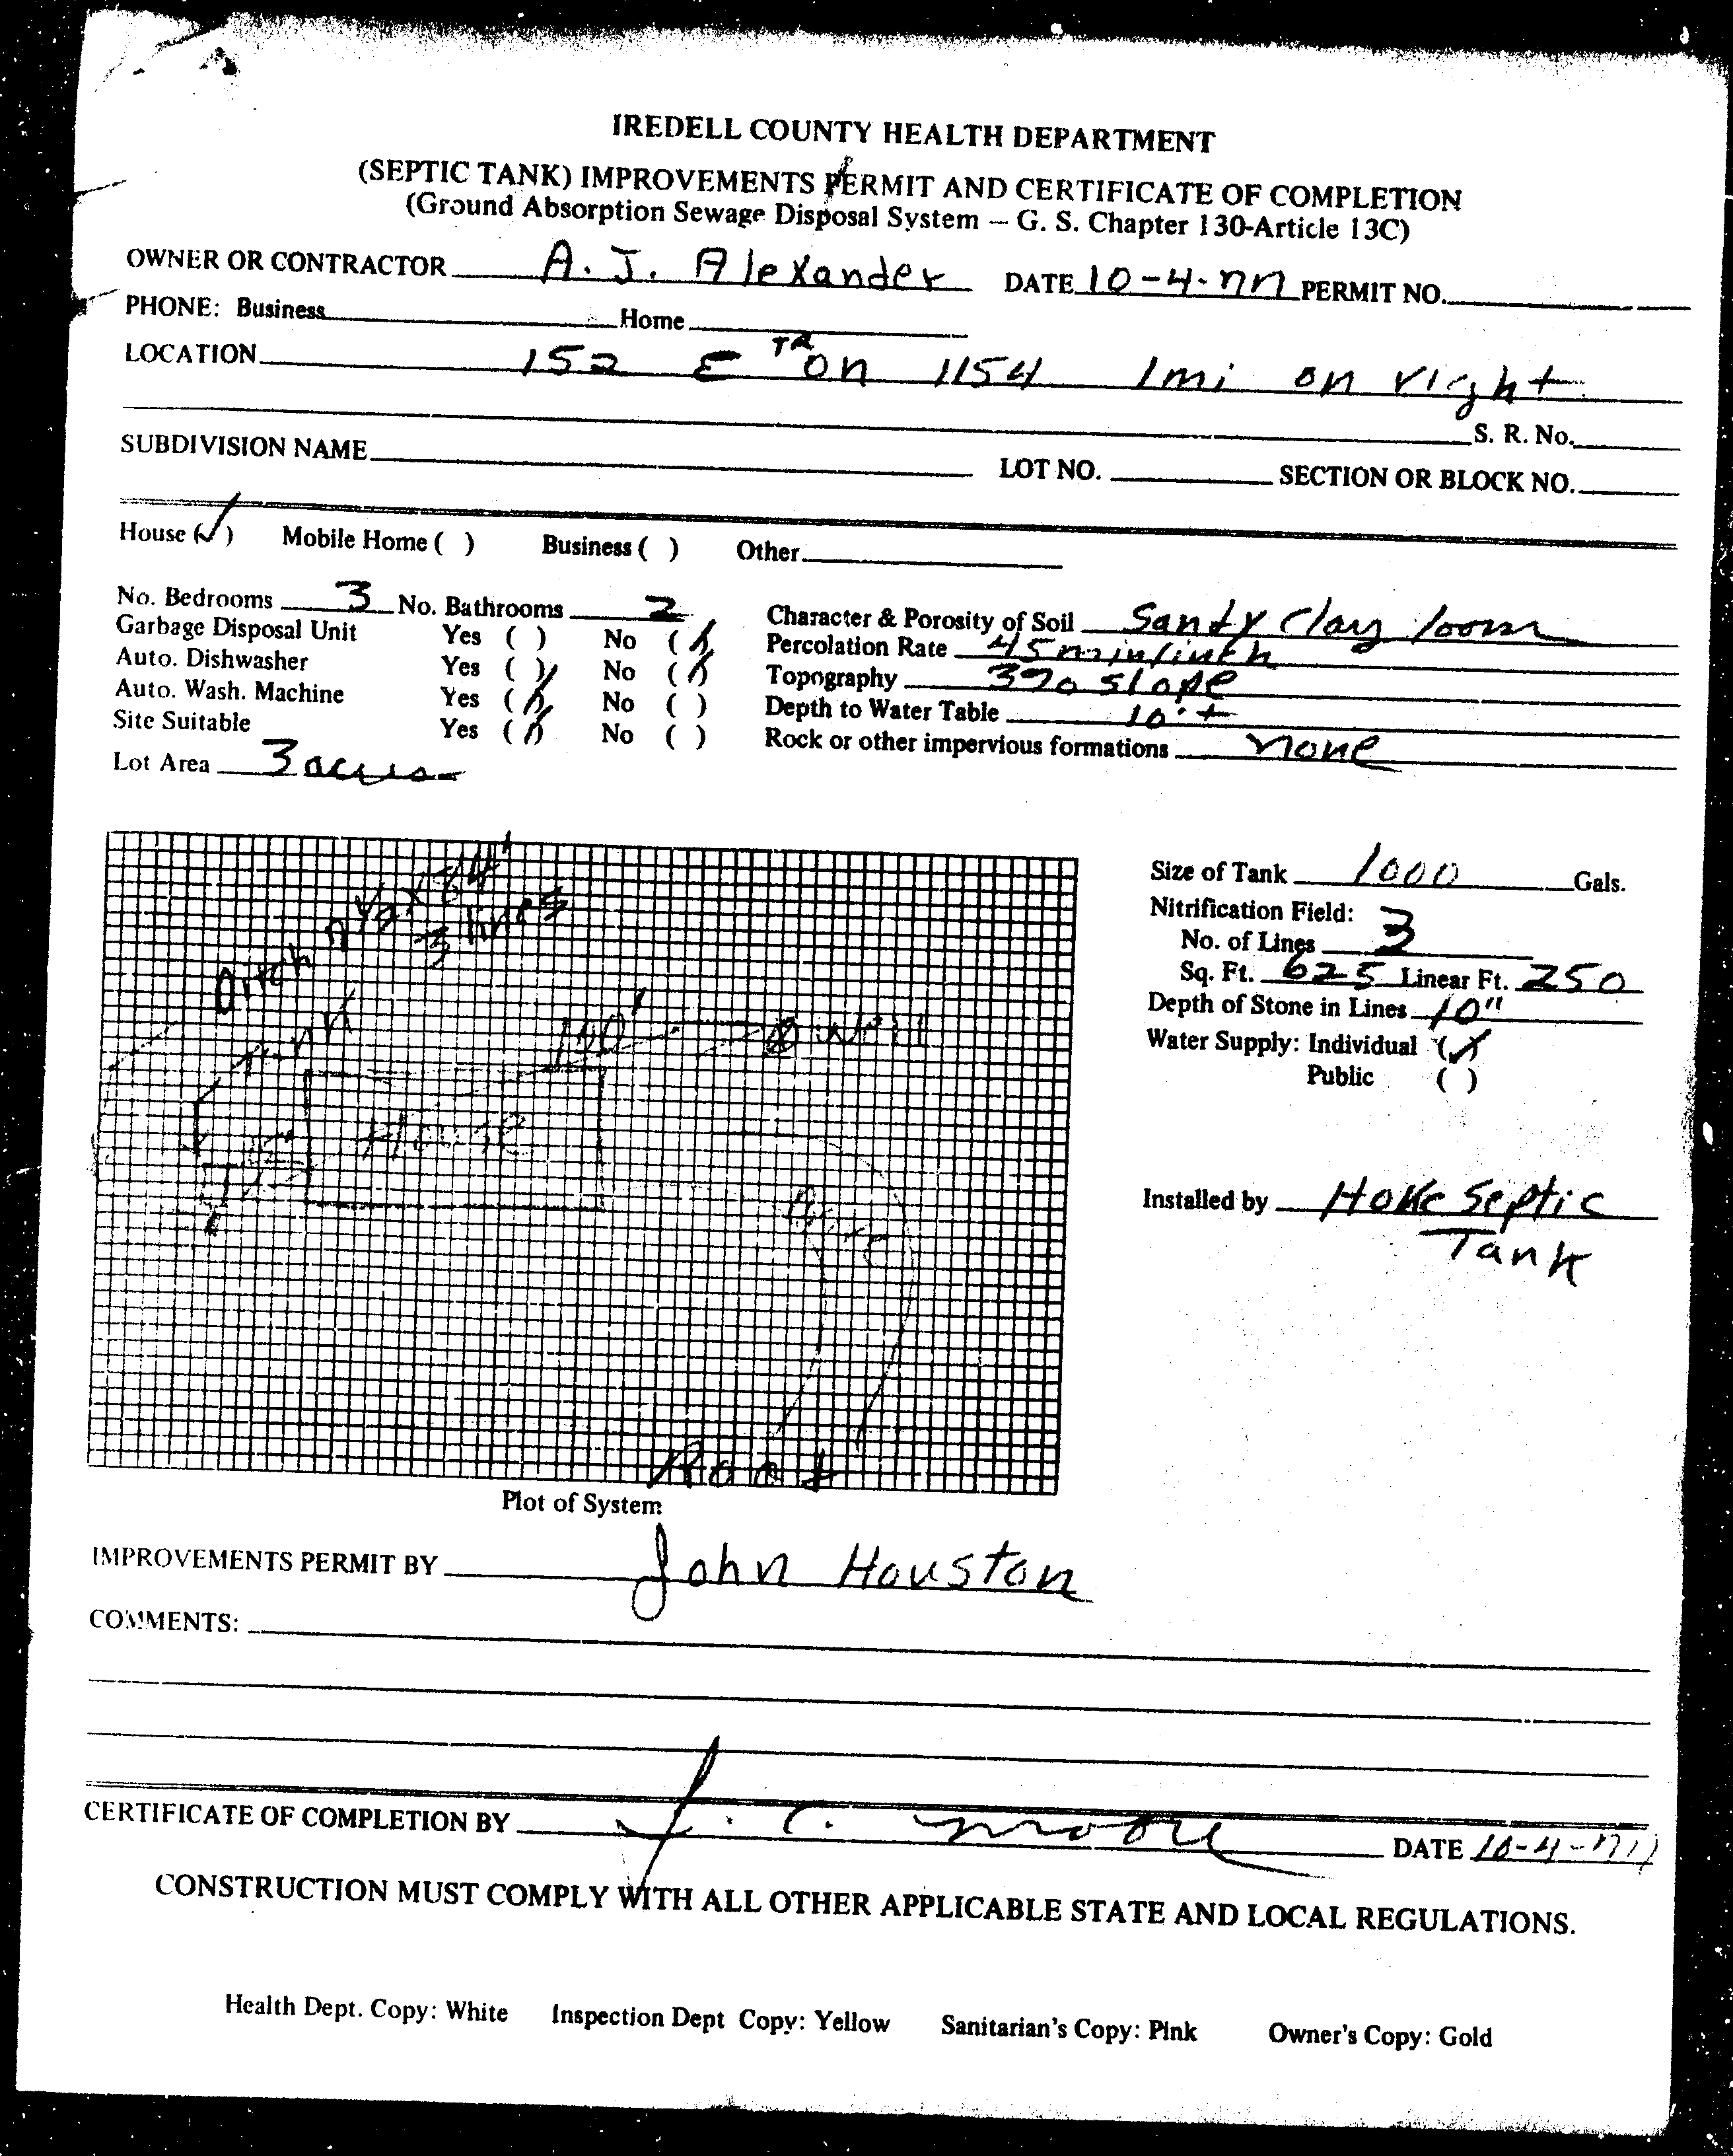 IREDELL COUNTY HEALTH DEPARTMENT
(SEPTIC TANK) IMPROVEMENTS PERMIT AND CERTIFICATE OF COMPLETION
(Ground Absorption Sewage Disposal System – G. S. Chapter 130-Article 13C)
OWNER OR CONTRACTOR A. J. Alexander DATE 10-4-77 PERMIT NO.
PHONE: Business Home
LOCATION 152 E TR on 1154 1mi on right
S. R. No.
SUBDIVISION NAME LOT NO. SECTION OR BLOCK NO.
House (✓) Mobile Home ( ) Business ( ) Other
No. Bedrooms 3 No. Bathrooms 2 Character & Porosity of Soil Sandy Clay loom
Garbage Disposal Unit Yes ( ) No (✓) Percolation Rate 45 min/inch
Auto. Dishwasher Yes ( ) No (✓) Topography 3% slope
Auto. Wash. Machine Yes (✓) No ( ) Depth to Water Table 10'+
Site Suitable Yes (✓) No ( ) Rock or other impervious formations none
Lot Area 3 acres
Ditch 84'
3 lines
Tank
100' Well
House
Road
Size of Tank 1000 Gals.
Nitrification Field:
No. of Lines 3
Sq. Ft. 625 Linear Ft. 250
Depth of Stone in Lines 10"
Water Supply: Individual (✓)
Public ( )
Installed by Hoke Septic
Tank
Plot of System
IMPROVEMENTS PERMIT BY John Houston
COMMENTS:
CERTIFICATE OF COMPLETION BY J. C. Moore DATE 10-4-77
CONSTRUCTION MUST COMPLY WITH ALL OTHER APPLICABLE STATE AND LOCAL REGULATIONS.
Health Dept. Copy: White Inspection Dept Copy: Yellow Sanitarian's Copy: Pink Owner's Copy: Gold